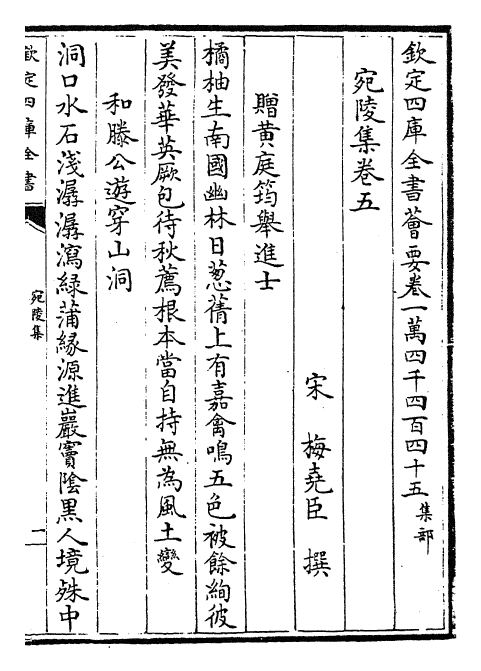 欽定四庫全書薈要卷一萬四千四百四十五集部
宛陵集卷五
宋 梅堯臣 撰
贈黄庭筠舉進士
橘柚生南國幽林日葱蒨上有嘉禽鳴五色被餘絢彼
美發華英厥包待秋薦根本當自持無為風土變
和滕公遊穿山洞
洞口水石淺潺潺瀉緑蒲緣源進巖竇陰黒人境殊中
欽定四庫全書
宛陵集